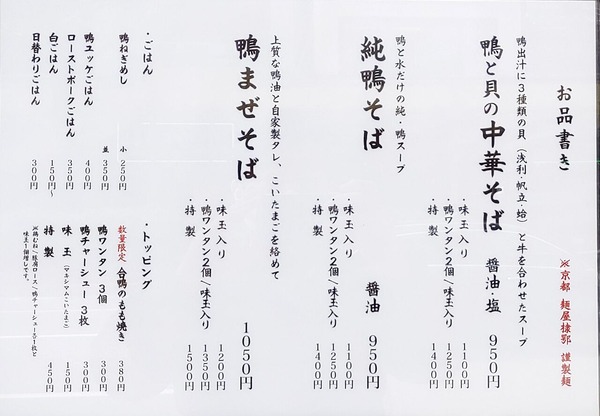 お品書き
※京都 麺屋棣鄂 謹製麺
鴨出汁に3種類の貝(浅利・帆立・蛤)と牛を合わせたスープ
鴨と貝の中華そば 醤油・塩 950円
・味玉入り 1100円
・鴨ワンタン2個/味玉入り 1250円
・特製 1400円
鴨と水だけの純・鴨スープ
純鴨そば 醤油 950円
・味玉入り 1100円
・鴨ワンタン2個/味玉入り 1250円
・特製 1400円
上質な鴨油と自家製タレ、こいたまごを絡めて
鴨まぜそば 1050円
・味玉入り 1200円
・鴨ワンタン2個/味玉入り 1350円
・特製 1500円
・ごはん
鴨ねぎめし 小 250円
並 350円
鴨ユッケごはん 400円
ローストポークごはん 350円
白ごはん 150円〜
日替わりごはん 300円
・トッピング
数量限定 合鴨のもも焼き 380円
鴨ワンタン 3個 300円
鴨チャーシュー 3枚 300円
味玉(マキシマムこいたまご) 150円
特製 450円
※鶏むね/豚肩ロース/鴨チャーシュー各1枚と
味玉1個増しです。